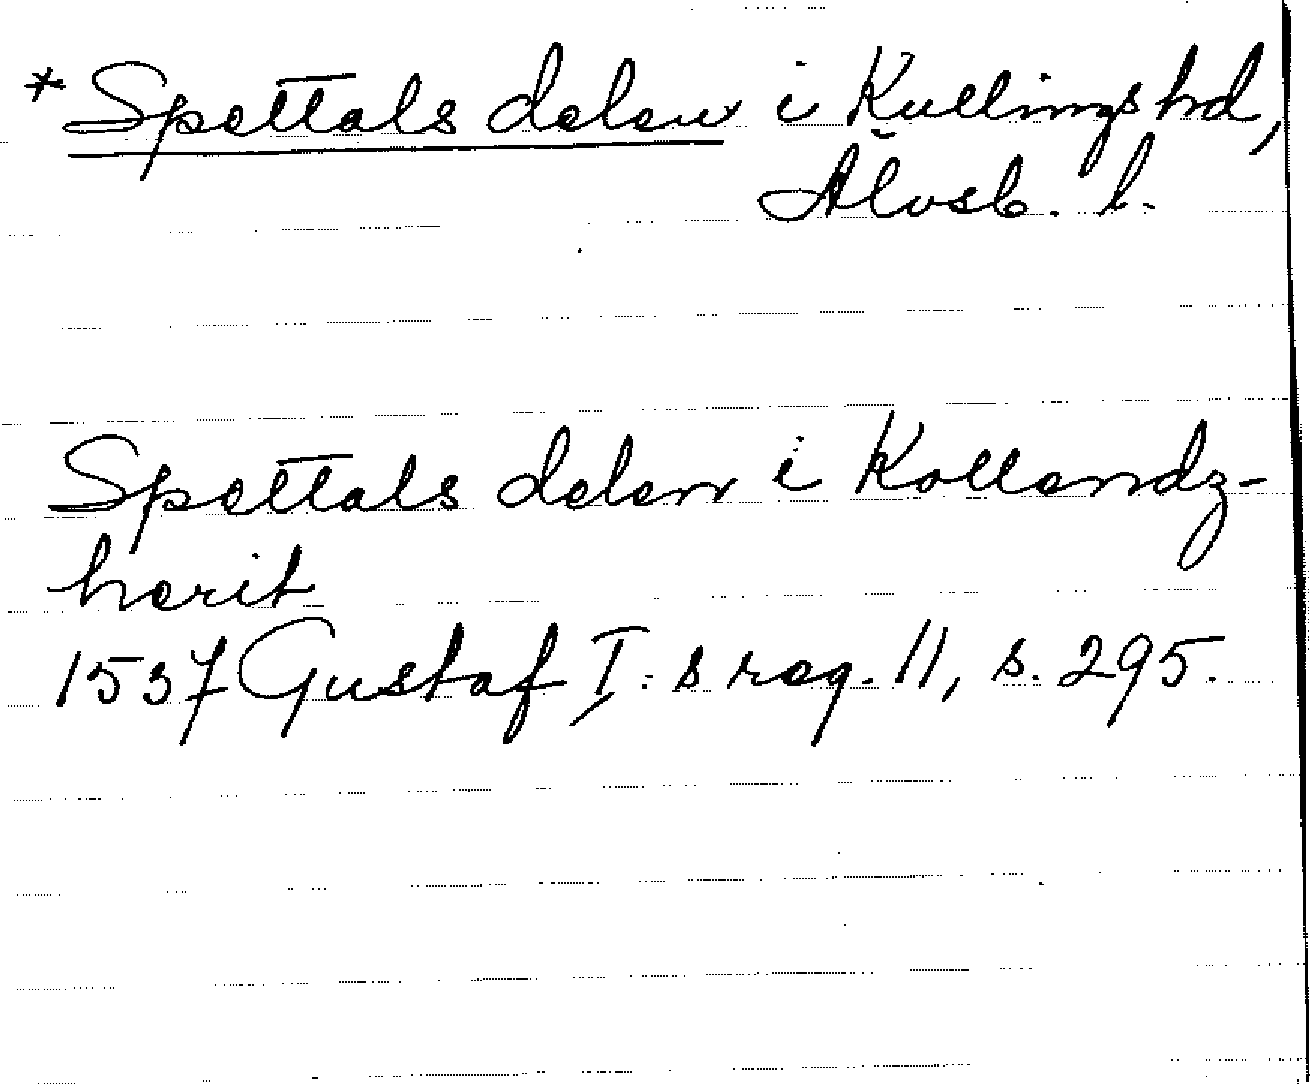 *Spettals delen i Kullings hd,
Älvsb. l.
Spettals delen i Kollandz-
herit
1537 Gustaf I:s reg. 11, s. 295.